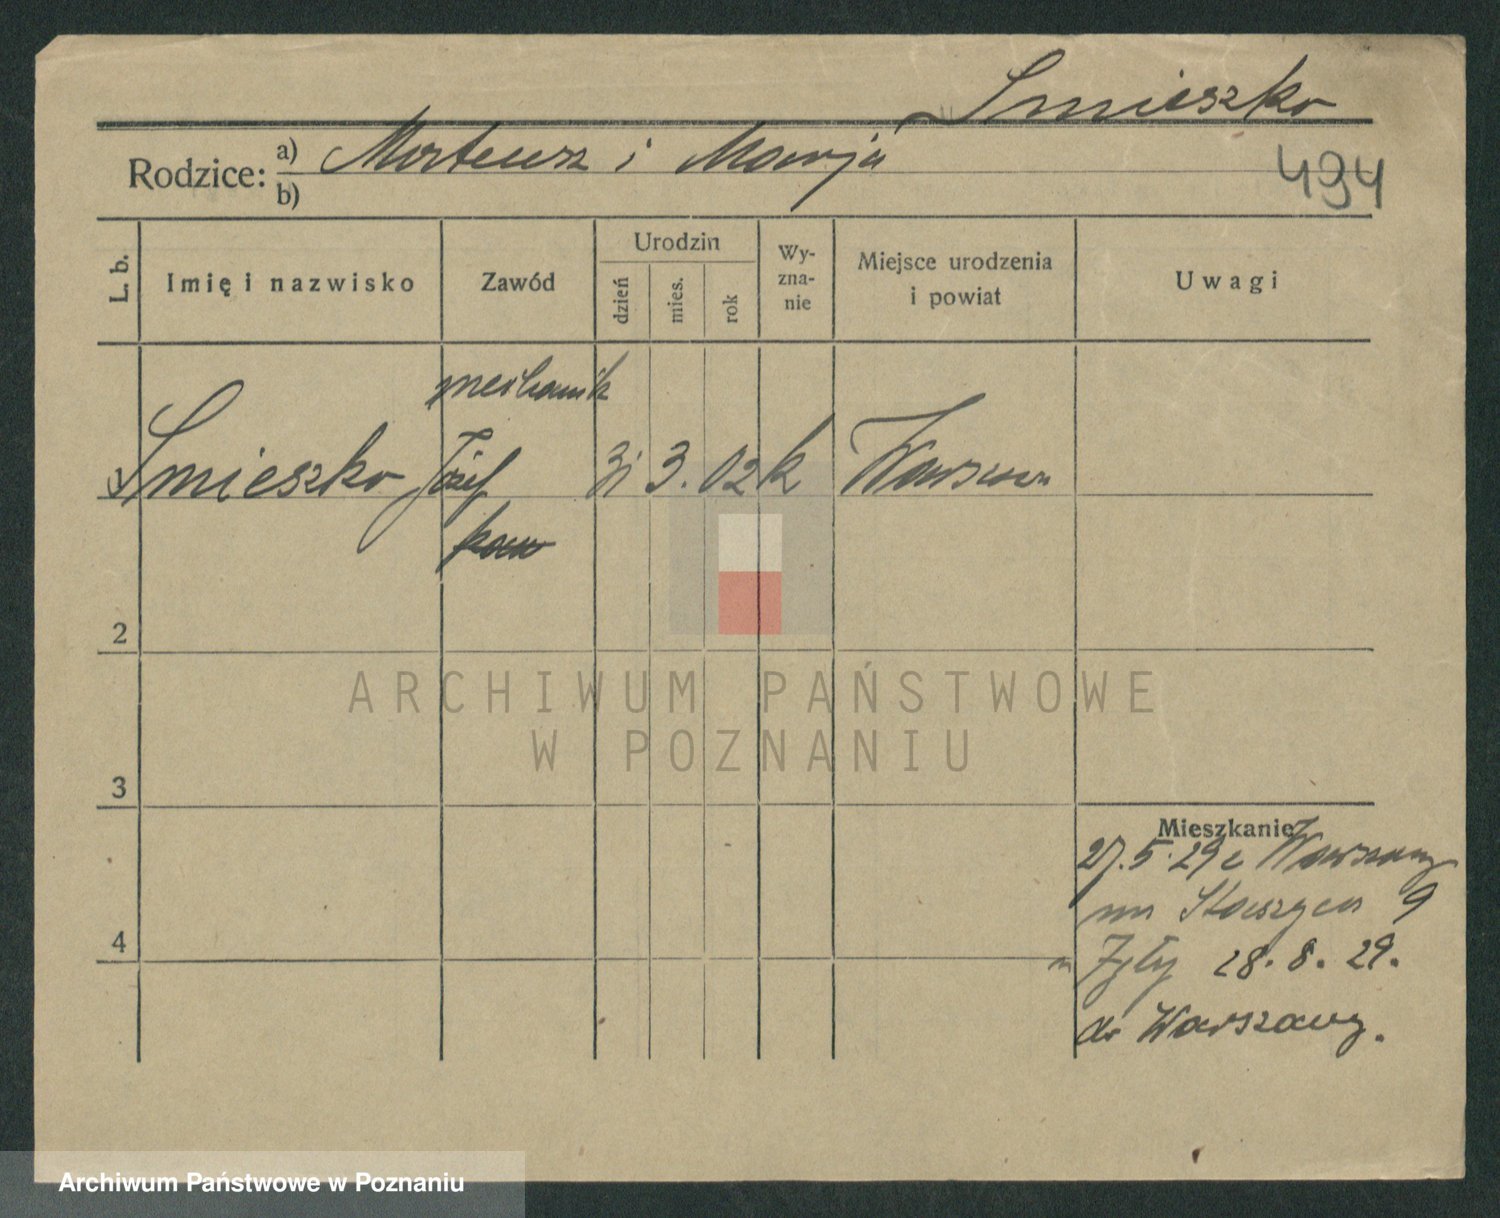 Smieszko
Rodzice: a) Mateusz i Marja
b)
494
L. b.
Imię i nazwisko
Zawód
Urodzin
dzień
mies.
rok
Wy-
zna-
nie
Miejsce urodzenia
i powiat
Uwagi
mechanik
Smieszko Józef 31 3. 02 k Warszawa
2
3
4
Mieszkanie
27.5.29 z Warszawy
na Staszyca 9
28. 8. 29.
do Warszawy.
ARCHIWUM PAŃSTWOWE
W POZNANIU
Archiwum Państwowe w Poznaniu